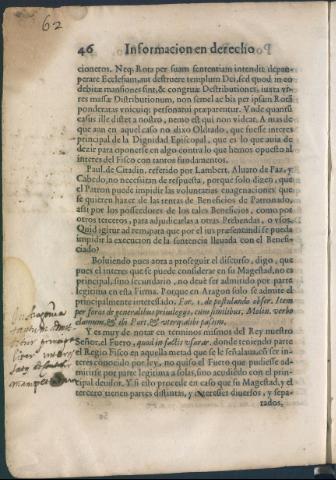 62
46 Informacion en derecho
cioneros. Neq; Rota per suam sententiam intendit depau-
perare Ecclesiam, aut destruere templum Dei, sed quod in eo
debitæ mansiones sint, & congruæ Distributiones, iuxta vi-
res massæ Distributionum, non semel ac bis per ipsam Rotā
ponderatas vnicuiq; personatui præparentur. Vnde quantū
casus ille distet a nostro, nemo est qui non videat. A mas de
que aun en aquel caso no dixo Oldrado, que fuesse interes
principal de la Dignidad Episcopal, que es lo que auia de
dezir para oponerse en algo contra lo que hemos opuesto al
interes del Fisco con tantos fundamentos.
Paul. de Citadin. referido por Lambert. Aluaro de Paz, y
Cabedo, no necessitan de respuesta, porque solo dizen, que
el Patron puede impidir las voluntarias enagenaciones que
se quieren hazer de las rentas de Beneficios de Patronado,
assi por los posseedores de los tales Beneficios, como por
otros terceros, para adjudicarlas a otras Prebendas, o vsos.
Quid igitur ad rem para que por el ius præsentandi se pueda
impidir la execucion de la sentencia lleuada con el Benefi-
ciado?
Boluiendo pues aora a proseguir el discurso, digo, que
pues el interes que se puede considerar en su Magestad, no es
principal, sino secundario, no deue ser admitido por parte
legitima en esta Firma. Porque en Aragon solo se admite el
principalmente interessado. For. 1. de postulando obser. Item
per foros de generalibus priuilegys, cum similibus, Molin. verbo
Y es muy de notar en terminos mesmos del Rey nuestro
Señor, el Fuero, quod in factis vsuræ. donde teniendo parte
el Regio Fisco en aquella metad que se le señalaua, cō ser in-
teres conocido por ley, no quiso el Fuero que pudiesse ad-
mitirse por parte legitima a solas, sino acudiēdo con el prin-
cipal deudor. Y si esto procede en caso que su Magestad, y el
tercero tienen partes distintas, y intereses diuersos, y sepa-
rados,